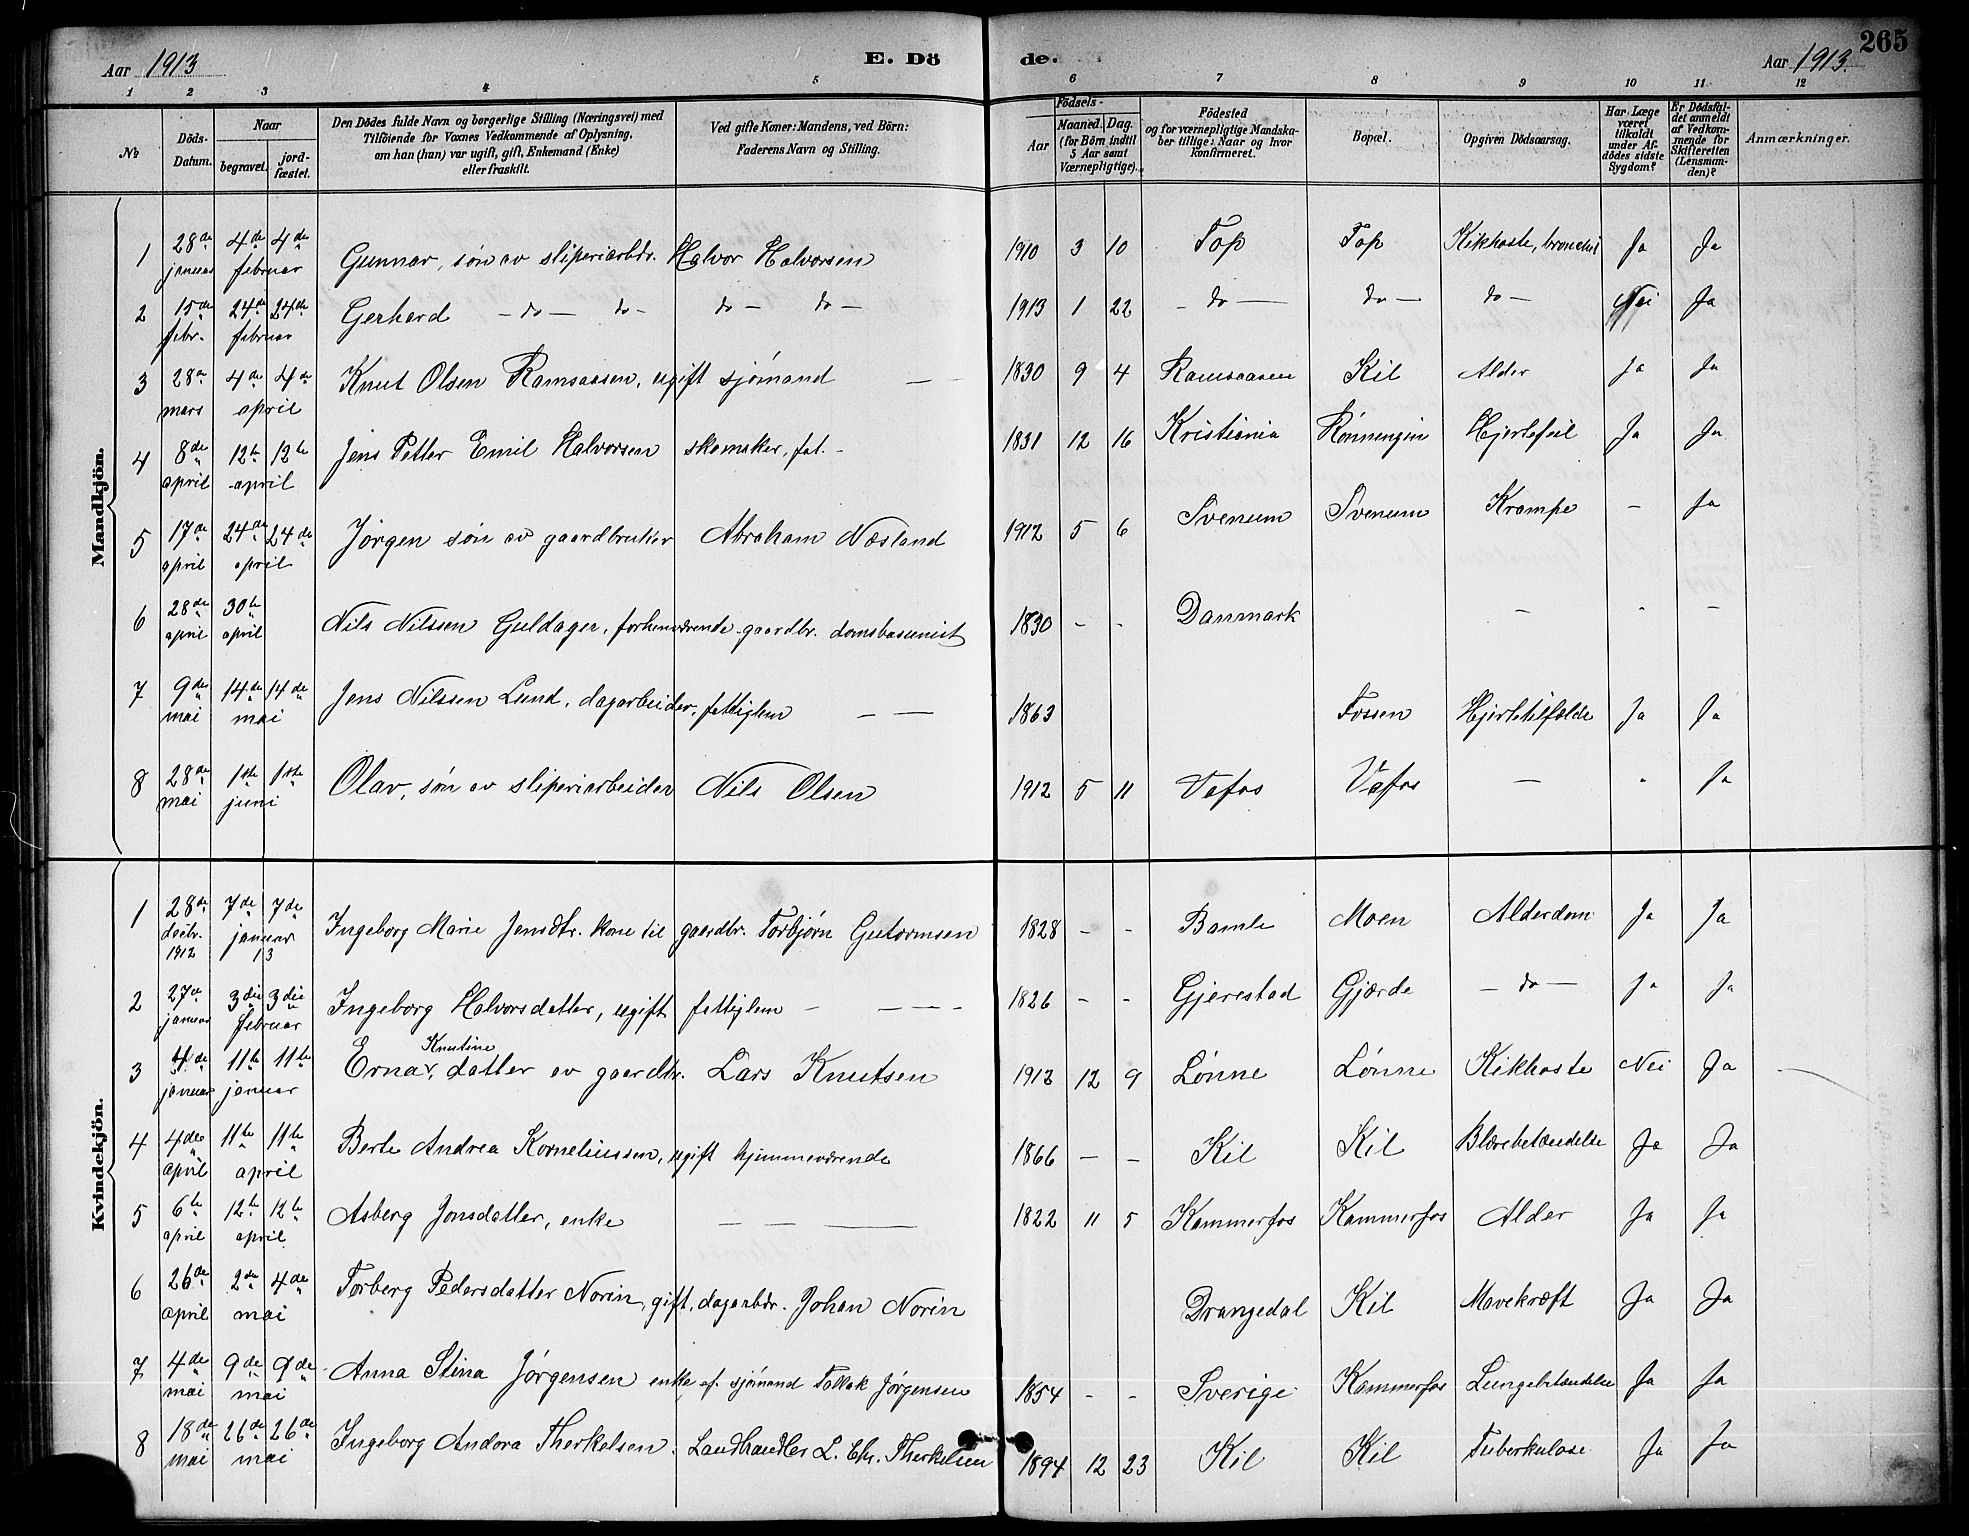 Aar 1913 E. Döde. Aar 1913. 265
1 2 3 4 5 6 7 8 9 10 11 12
№ Döds-Datum. Naar begravet. jordfæstet. Den Dödes fulde Navn og borgerlige Stilling (Næringsvei) med Tilföiende for Voxnes Vedkommende af Oplysning, om han (hun) var ugift, gift, Enkemand (Enke) eller fraskilt. Ved gifte Koner: Mandens, ved Börn: Faderens Navn og Stilling. Födsels- Aar Maaned. Dag. (for Börn indtil 5 Aar samt Værnepligtige). Födested og for værnepligtige Mandskaber tillige: Naar og hvor konfirmeret. Bopæl. Opgiven Dödsaarsag. Har Læge været tilkaldt under Afdödes sidste Sygdom? Er Dödsfaldet anmeldt af Vedkommende for Skifteretten (Lensmanden)? Anmærkninger.
Mandkjön.
1 28de januar 4de 4de februar Gunnar, søn av sliperiarbdr. Halvor Halvorsen 1910 3 10 Top Top Kikhoste, Ja Ja
2 15de febr. 24de 24de februar Gerhard - do - do - do - do - 1913 1 22 - do - do - do - Nei Ja
3 28de mars 4de 4de april Knut Olsen Ramsaasen, ugift sjømand — 1830 9 4 Ramsaasen Kil Alder Ja Ja
4 8de april 12te 12te april Jens Petter Emil Halvorsen skomaker, fat. - 1831 12 16 Kristiania Rønningen Hjertefeil Ja Ja
5 17de april 24de 24de april Jørgen søn av gaardbruker Abraham Næsland 1912 5 6 Svenum Svenum Krampe - Ja
6 28de april 30te april Nils Nilssen Guldager, forhenværende gaardbr. 1830 - - Danmark - - -
7 9de mai 14de 14de mai Jens Nilssen Lund, dagarbeider, fattiglem — — 1863 Fossen Hjertetilfælde Ja Ja
8 28de mai 1ste 1ste juni Olav, søn av sliperiarbeider Nils Olsen 1912 5 11 Vafos Vafos — - Ja
Kvindekjön.
1 28de decbr. 1912 7de 7de januar 13 Ingeborg Marie Jensdtr. kone til gaardbr. Torbjørn Gutormsen 1828 - - Bamle Moen Alderdom Ja Ja
2 27de januar 3die 3die februar Ingeborg Halvorsdatter, ugift fattiglem — — 1826 - - Gjerestad Gjærde - do - Ja Ja
3 4de januar 11te 11te januar Erna Knutine, datter av gaardbr. Lars Knutsen 1912 12 9 Lønne Lønne Kikhoste Nei Ja
4 4de april 11te 11te april Berte Andrea Korneliussen, ugift hjemmeværende 1866 — - Kil Kil Blærebetændelse Ja Ja
5 6te april 12te 12te april Asberg Jonsdatter, enke — — — 1822 11 5 Kammerfos Kammerfos Alder Ja Ja
6 26de april 2den 4de mai Torberg Pedersdatter Norin, gift, dagarbdr. Johan Norin Drangedal Kil Mavekræft Ja Ja
7 4de mai 9de 9de mai Anna Stina Jørgensen enke ef. sjømand Tollak Jørgensen 1854 - - Sverige Kammerfos Lungebetændelse Ja Ja
8 18de mai 26de 26de mai Ingeborg Andora Therkelsen. Landhandler L. Chr. Therkelsen 1894 12 23 Kil Kil Tuberkulose Ja Ja